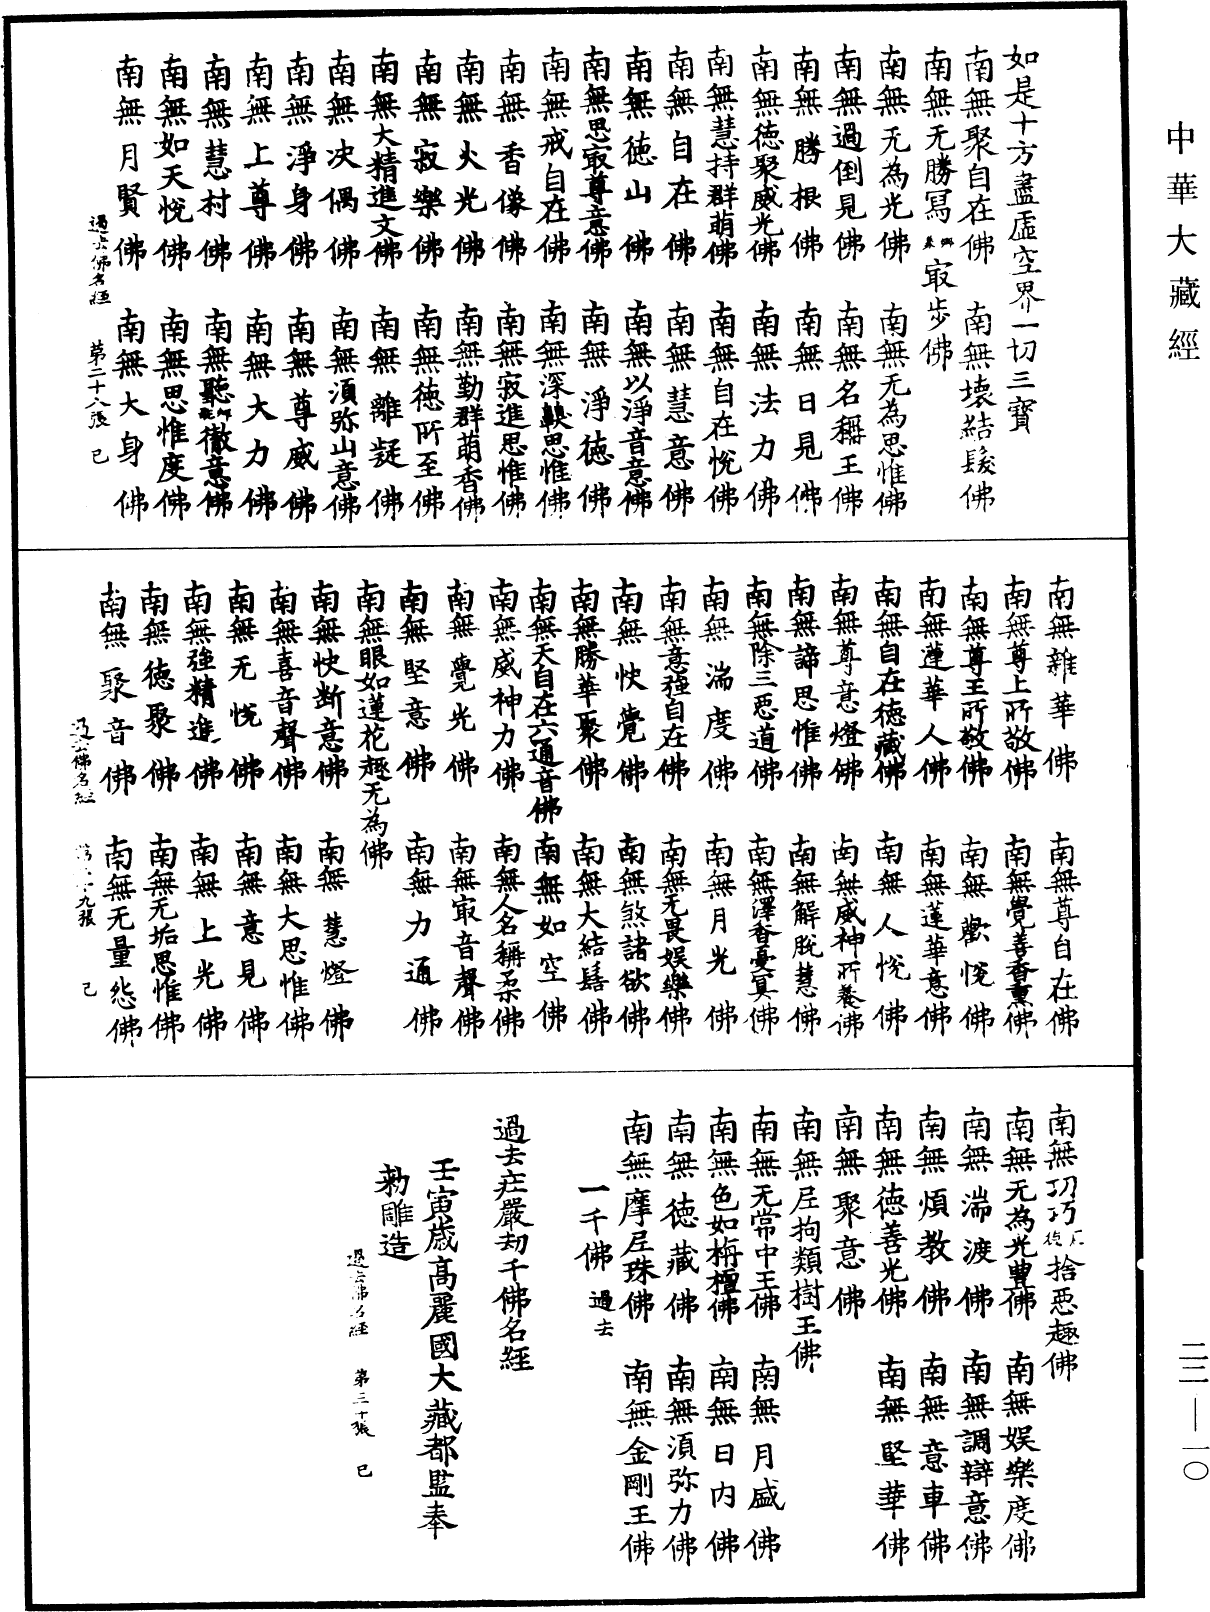 中華大藏經
如是十方盡虛空界一切三寶
南無聚自在佛　南無壞結髮佛
南無无勝冩㝡步佛
南無无為光佛　南無无為思惟佛
南無過倒見佛　南無名稱王佛
南無勝根佛　南無日見佛
南無德聚威光佛　南無法力佛
南無慧持群萌佛　南無自在悅佛
南無自在佛　南無慧意佛
南無德山佛　南無以淨音意佛
南無思㝡尊意佛　南無淨德佛
南無戒自在佛　南無深軟思惟佛
南無香像佛　南無寂進思惟佛
南無火光佛　南無勤群萌香佛
南無寂樂佛　南無德所至佛
南無大精進文佛　南無離疑佛
南無决偶佛　南無須弥山意佛
南無淨身佛　南無尊威佛
南無上尊佛　南無大力佛
南無慧村佛　南無聽徹意佛
南無如天悅佛　南無思惟度佛
南無月賢佛　南無大身佛
過去佛名經　第二十八張　己
南無雜華佛　南無尊自在佛
南無尊上所敬佛　南無覺善香熏佛
南無尊王所敬佛　南無歡悅佛
南無蓮華人佛　南無蓮華意佛
南無自在德藏佛　南無人悅佛
南無尊意燈佛　南無威神所養佛
南無諦思惟佛　南無解脫慧佛
南無除三惡道佛　南無澤香憂冥佛
南無湍度佛　南無月光佛
南無意强自在佛　南無无畏娱樂佛
南無快覺佛　南無煞諸欲佛
南無勝華聚佛　南無大結髻佛
南無天自在六通音佛　南無如空佛
南無威神力佛　南無人名稱柔佛
南無覺光佛　南無㝡音聲佛
南無堅意佛　南無力通佛
南無眼如蓮花趣无為佛
南無快断意佛　南無慧燈佛
南無喜音聲佛　南無大思惟佛
南無无悅佛　南無意見佛
南無強精進佛　南無上光佛
南無德聚佛　南無无垢思惟佛
南無聚音佛　南無无量怨佛
過去佛名經　九張　己
南無功巧捨惡趣佛
南無无為光豐佛　南無娱樂度佛
南無湍渡佛　南無調辯意佛
南無煩教佛　南無意車佛
南無德善光佛　南無堅華佛
南無聚意佛
南無尼拘類樹王佛
南無无常中王佛　南無月盛佛
南無色如栴檀佛　南無日内佛
南無德藏佛　南無須弥力佛
南無摩尼珠佛　南無金剛王佛
一千佛過去
過去庄嚴劫千佛名經
壬寅歲高麗國大藏都監奉
勑雕造
過去佛名經　第三十張　己
二二—一〇